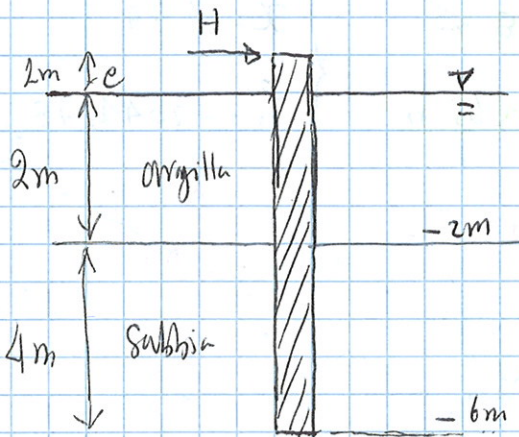 H
1m e
2m argilla
-2m
4m Sabbia
-6m